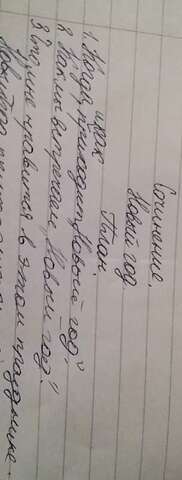 Сочинение.
Новый год.
План
и как
1. Когда, приходит „Новый год"?
2. Как мы встречаем „Новый год".
3. Что мне нравится в этом празднике.